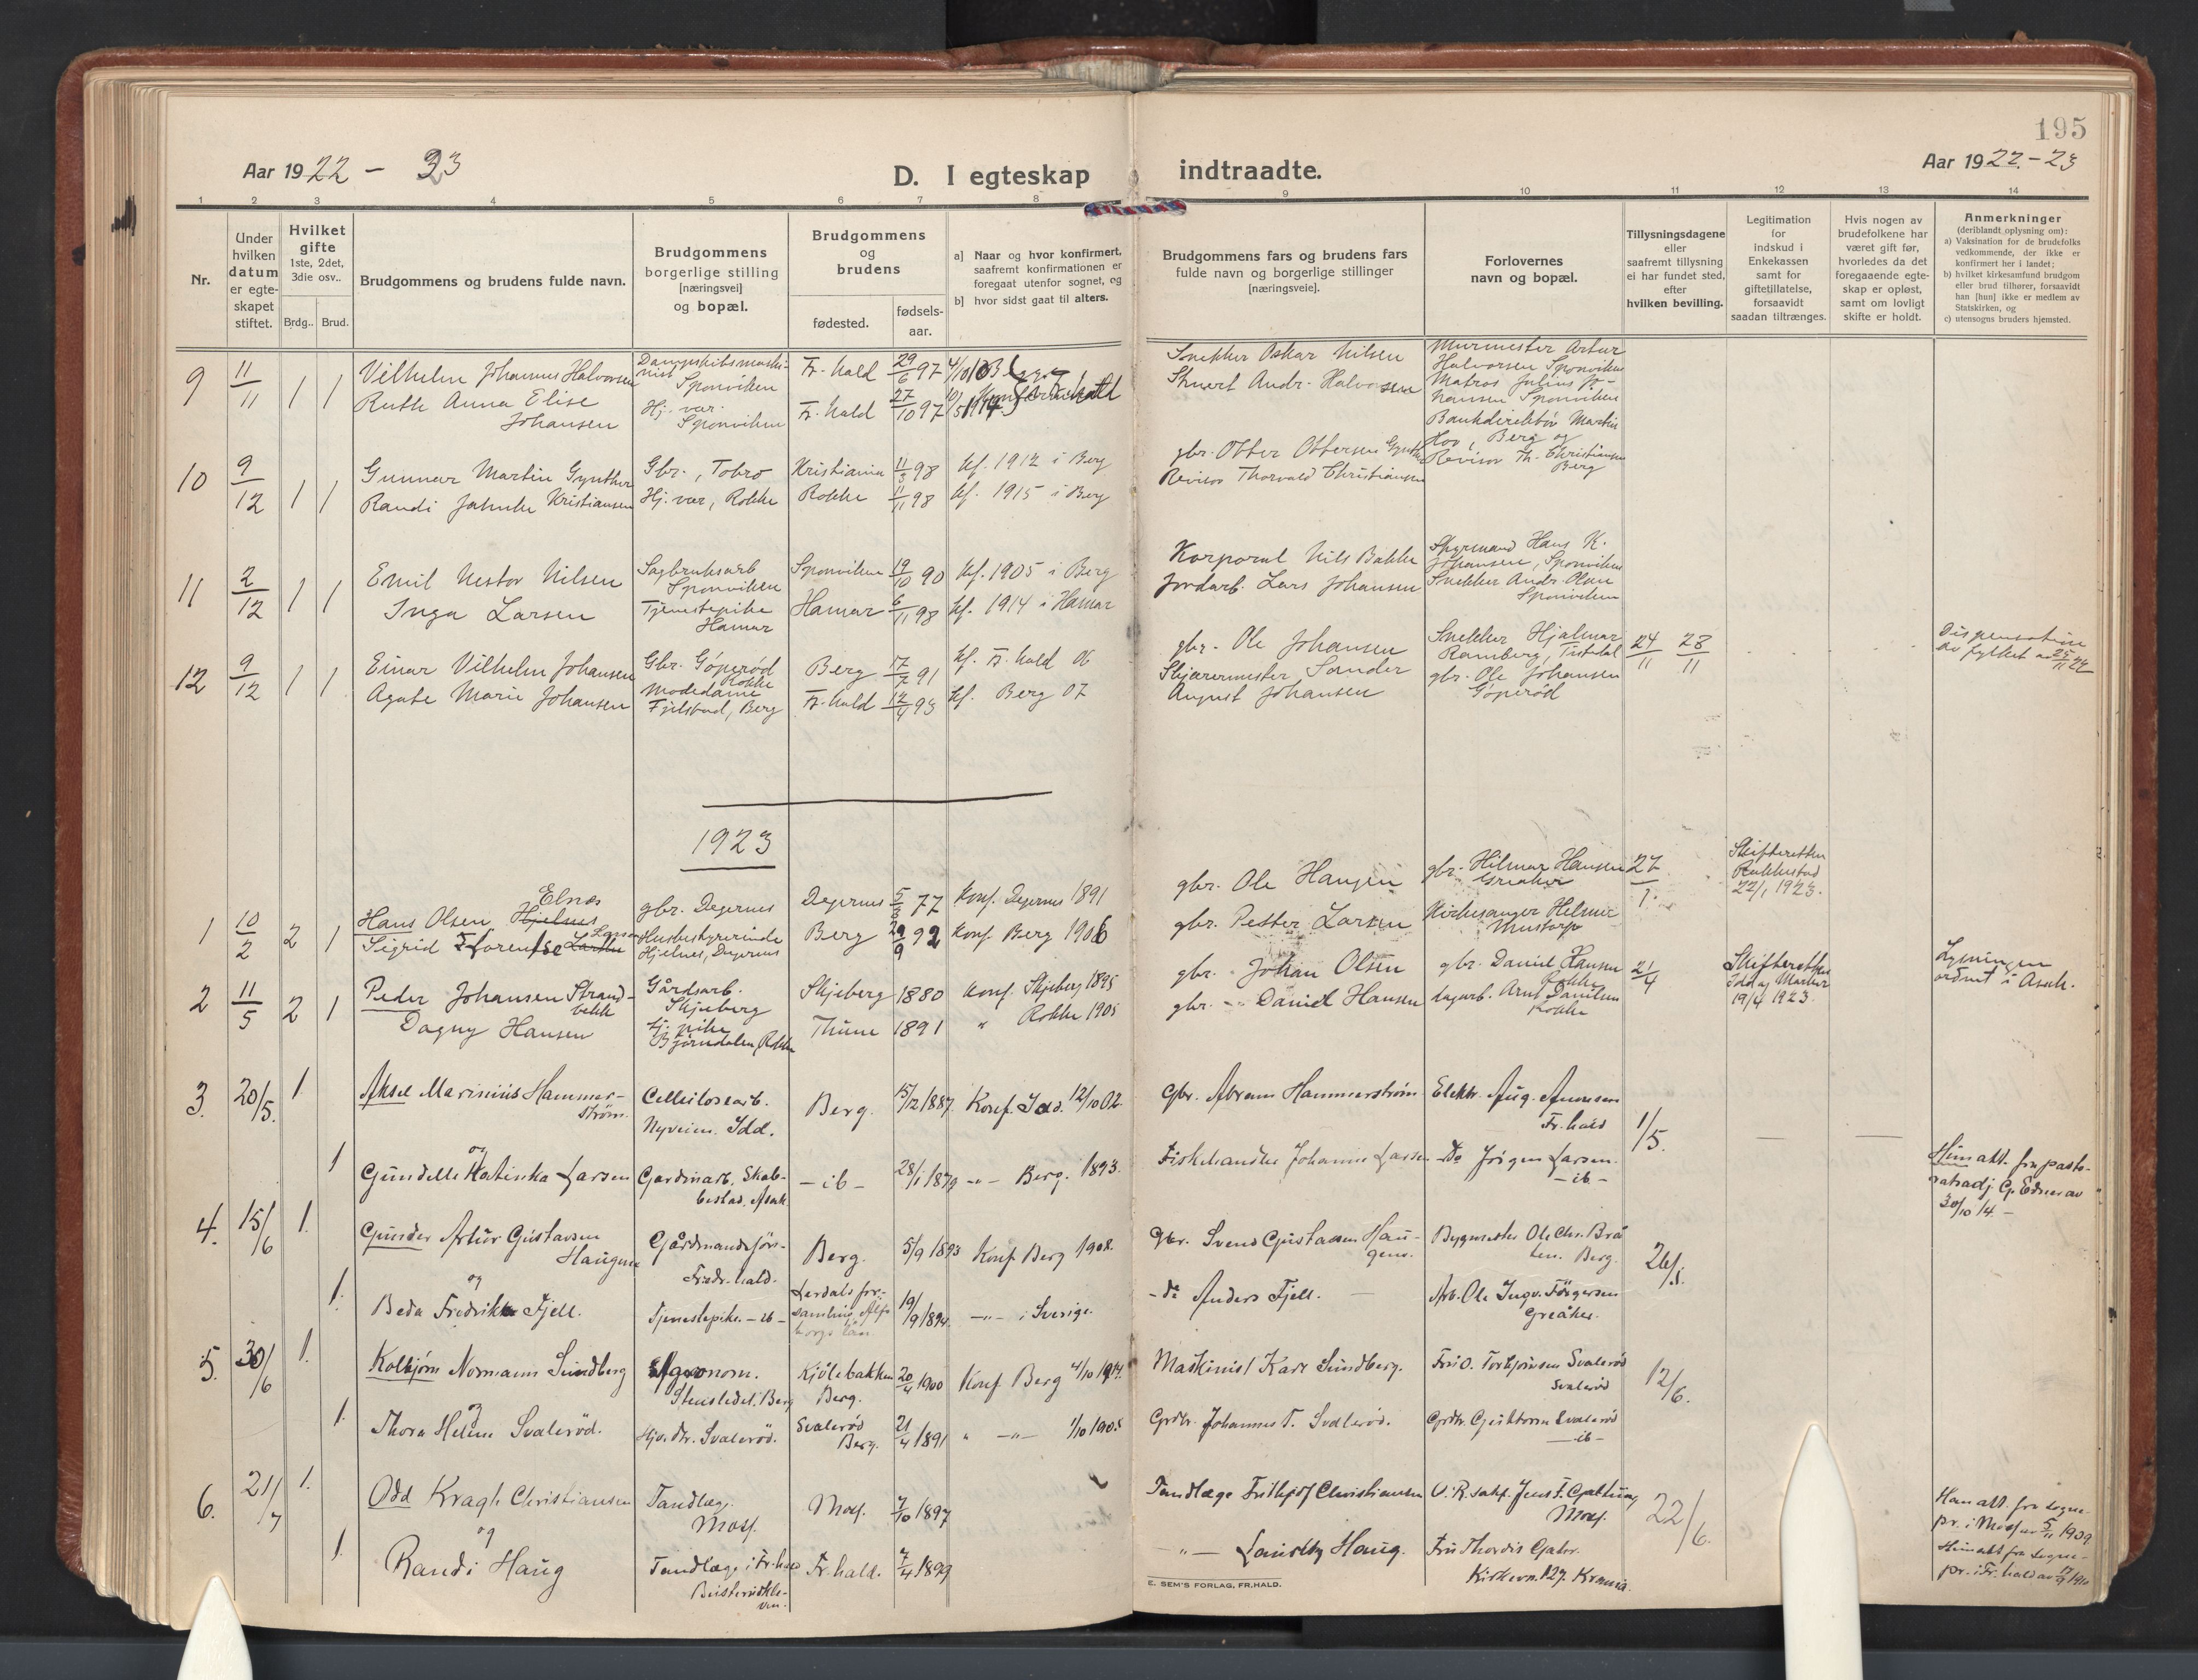 195
Aar 1922 - 23
D. I egteskap indtraadte.
Aar 1922-23
1 2 3 4 5 6 7 8 9 10 11 12 13 14
Nr.
Under hvilken datum er egteskapet stiftet.
Hvilket gifte
1ste, 2det, 3die osv..
Brdg.. Brud.
Brudgommens og brudens fulde navn.
Brudgommens borgerlige stilling [næringsvei] og bopæl.
Brudgommens og brudens
fødested.
fødsels-aar.
a] Naar og hvor konfirmert, saafremt konfirmationen er foregaat utenfor sognet, og
b] hvor sidst gaat til alters.
Brudgommens fars og brudens fars fulde navn og borgerlige stillinger [næringsveie].
Forlovernes navn og bopæl.
Tillysningsdagene eller saafremt tillysning ei har fundet sted, efter hvilken bevilling.
Legitimation for indskud i Enkekassen samt for giftetillatelse, forsaavidt saadan tiltrænges.
Hvis nogen av brudefolkene har været gift før, hvorledes da det foregaaende egteskap er opløst, samt om lovligt skifte er holdt.
Anmerkninger
(deriblandt oplysning om):
a) Vaksination for de brudefolks vedkommende, der ikke er konfirmert her i landet;
b) hvilket kirkesamfund brudgom eller brud tilhører, forsaavidt han [hun] ikke er medlem av Statskirken, og
c) utensogns bruders hjemsted.
9 11/11 1 1 Vilhelm Johannes Halvorsen
Dampskibsmaskinist Sponviken
Fr.hald 29/6 97
Snekker Oskar Nilsen
Murmester Artur Halvorsen Sponviken
Ruth Anna Elise Johansen
Hj. vær. Sponviken
Fr.hald 27/10 97
Andr. Halvorsen
Matros Julius Johansen Sponviken
10 9/12 1 1 Gunnar Martin Gynther
Gbr., Tobro
Kristiania 11/3 98
kf. 1912 i Berg
gbr. Otter Ottersen Gynther
Bankdirektør Martin Hov, Berg og
Randi Jahnke Kristiansen
Hj. vær, Rokke
Rokke 11/11 98
kf. 1915 i Berg
Revisor Thorvald Christiansen
Revisor Th. Christiansen Berg
11 2/12 1 1 Emil Nestor Nilsen
Sagbruksarb Sponviken
Sponviken 19/10 90
kf. 1905 i Berg
Korporal Nils Bakke
Styrmand Hans K. Johansen, Sponviken
Inga Larsen
Tjenestepike Hamar
Hamar 6/11 98
kf. 1914 i Hamar
Jordarb. Lars Johansen
Snekker Andr. Olsen Sponviken
12 9/12 1 1 Einar Vilhelm Johansen
Gbr. Gøperød Rokke
Berg 17/7 91
kf. Fr.hald 06
gbr. Ole Johansen
Snekker Hjalmar Ramberg, Tistedal
24/11 28/11
Dispensation av fylket av 25/11 22
Agate Marie Johansen
Modedame Fjelstad, Berg
Fr.hald 12/4 93
kf. Berg 07
Skjærermester Sander August Johansen
gbr. Ole Johansen Gøperød
1923
1 10/2 2 1 Hans Olsen Hjelnes Elnæs
gbr. Degernes
Degernes 5/3 77
Konf. Degernes 1891
gbr. Ole Hansen
gbr. Hilmar Hansen Greaker
27/1
Skifteretten Rakkestad 22/1 1923.
Sigrid Florense Larsen
Husbestyrerinde Hjelnes, Degernes
Berg 29/9 92
Konf. Berg 1906
gbr. Petter Larsen
Kirkesanger Helmer Mustorp
2 11/5 2 1 Peder Johansen Strandbekk
Gårdsarb. Skjeberg
Skjeberg 1880
Konf. Skjeberg 1895
gbr. Johan Olsen
gbr. Daniel Hansen Rokke
21/4
Skifteretten Idd og Marker 19/4 1923.
Lysningen ordnet i Asak.
Dagny Hansen
tj. pike Bjørndalen, Rokke
Thune 1891
" Rokke 1905
gbr. Daniel Hansen
dagarb. Arnt Danielsen Rokke
3. 20/5. 1 Aksel Marinius Hammerstrøm.
Cellulosearb. Nyveien. Idd.
Berg. 15/12 1887.
Konf. Idd. 12/10 02.
Gbr. Abram Hammerstrøm
Elektr. Aug. Amundsen Fr.hald
1/5.
1 og Gundelle Katinka Larsen
Gardinarb. Skabbestad. Asak
-ib- 28/1 1879
-"- Berg. 1893.
Fiskehandler Johannes Larsen
Do Jörgen Larsen. -ib-
Hun att. fra pastoratsadj. G. Edner av 30/10 14.-
4. 15/6 1. Gunder Artur Gustavsen Haugene
Gårdmandsför- Fredr.hald.
Berg. 5/9 1893
Konf. Berg 1908.
Gbr. Svend Gustavsen Haugene.
Bygmester Ole Chr. Bråten. Berg.
26/5.
1. og Beda Fredrikke Fjell.
Tjenestepike. -ib-
Lerdals församling, Älfsborgs län.
19/9 1894.
-"- i Sverige.
-do Anders Fjell.
Arb. Ole Ingv. Jörgersen Greåker.
5. 30/6 1. Kolbjørn Normann Sundberg
Agronom. Stensledet. Berg
Kjölebakken Berg. 20/4 1900
Konf. Berg 4/10 1914.
Maskinist Karl Sundberg.
Fru O. Torbjörnsen Svalerød Svalerød
12/6.
1. og Thora Helene Svalerød.
Hjv. dtr. Svalerød.
Svalerød Berg. 21/4 1891
" -"- 1/10 1905
Grdbr. Johannes T. Svalerød.
Grdbr. Guttorm Svalerød -ib-
6. 21/7 1. Odd Kragh Christiansen
Tandlæge. Moss.
Moss. 7/10 1897
Tandlæge Frithjof Christiansen
O.R.sakf. Jens F. Galtung Moss.
22/6.
Han att. fra sognepr. i Moss av 5/11 1909
1. og Randi Haug
Tandlæge i Fr.hald
Fr.hald. 7/4 1899
-"- Lauritz Haug.
Fru Thordis
Kirkevn. 127. Krania.
Hun att fra sognepr. i Fr.hald av 17/9 1910
E. SEM'S FORLAG, FR.HALD.